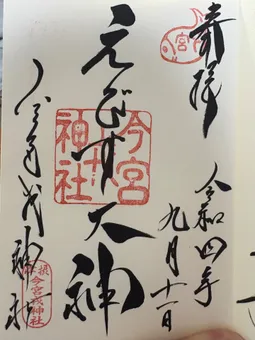 奉拝
令和四年
九月十一日
えびす大神
今宮
神社
今宮戎神社